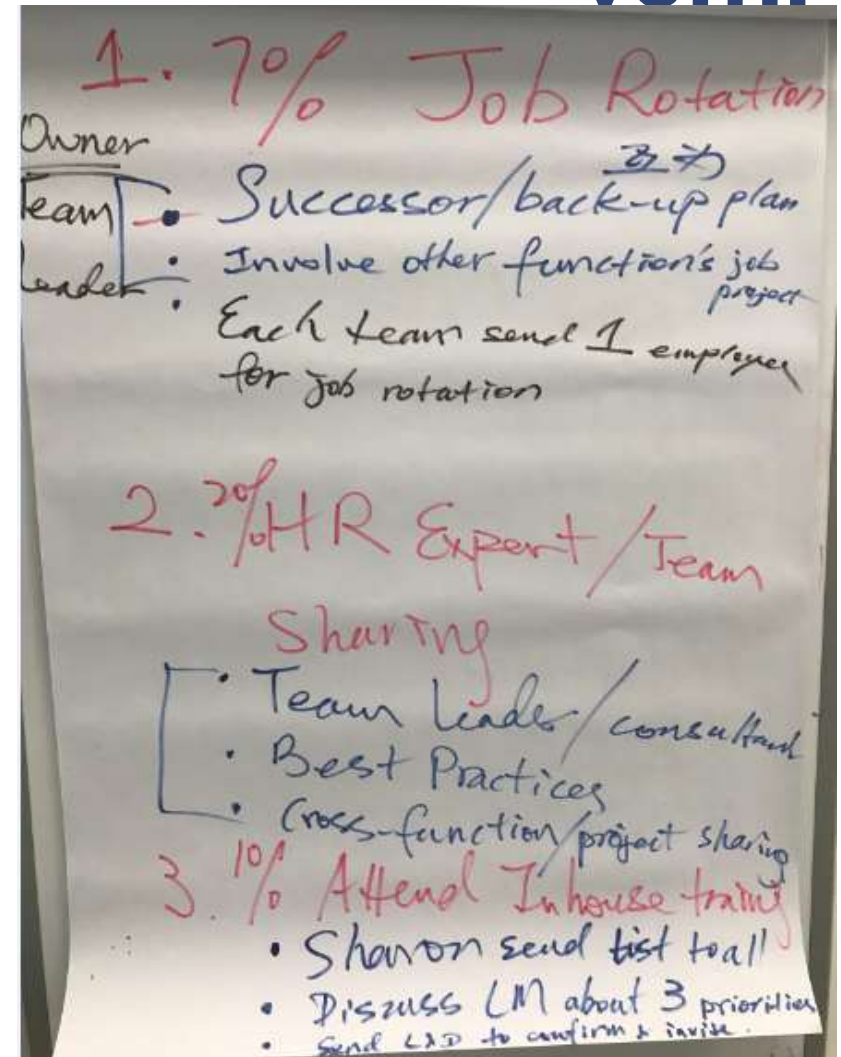 1. 70% Job Rotation
Owner
Team
Leader
互为
• Successor/back-up plan
• Involve other function's job
project
• Each team send 1 employee
for job rotation
2. 20% HR Expert/Team
Sharing
• Team Leader/consultant
• Best Practices
• Cross-function/project sharing
3. 10% Attend Inhouse traing
• Sharon send list to all
• Discuss LM about 3 priorities
• Send L&D to confirm & invite.